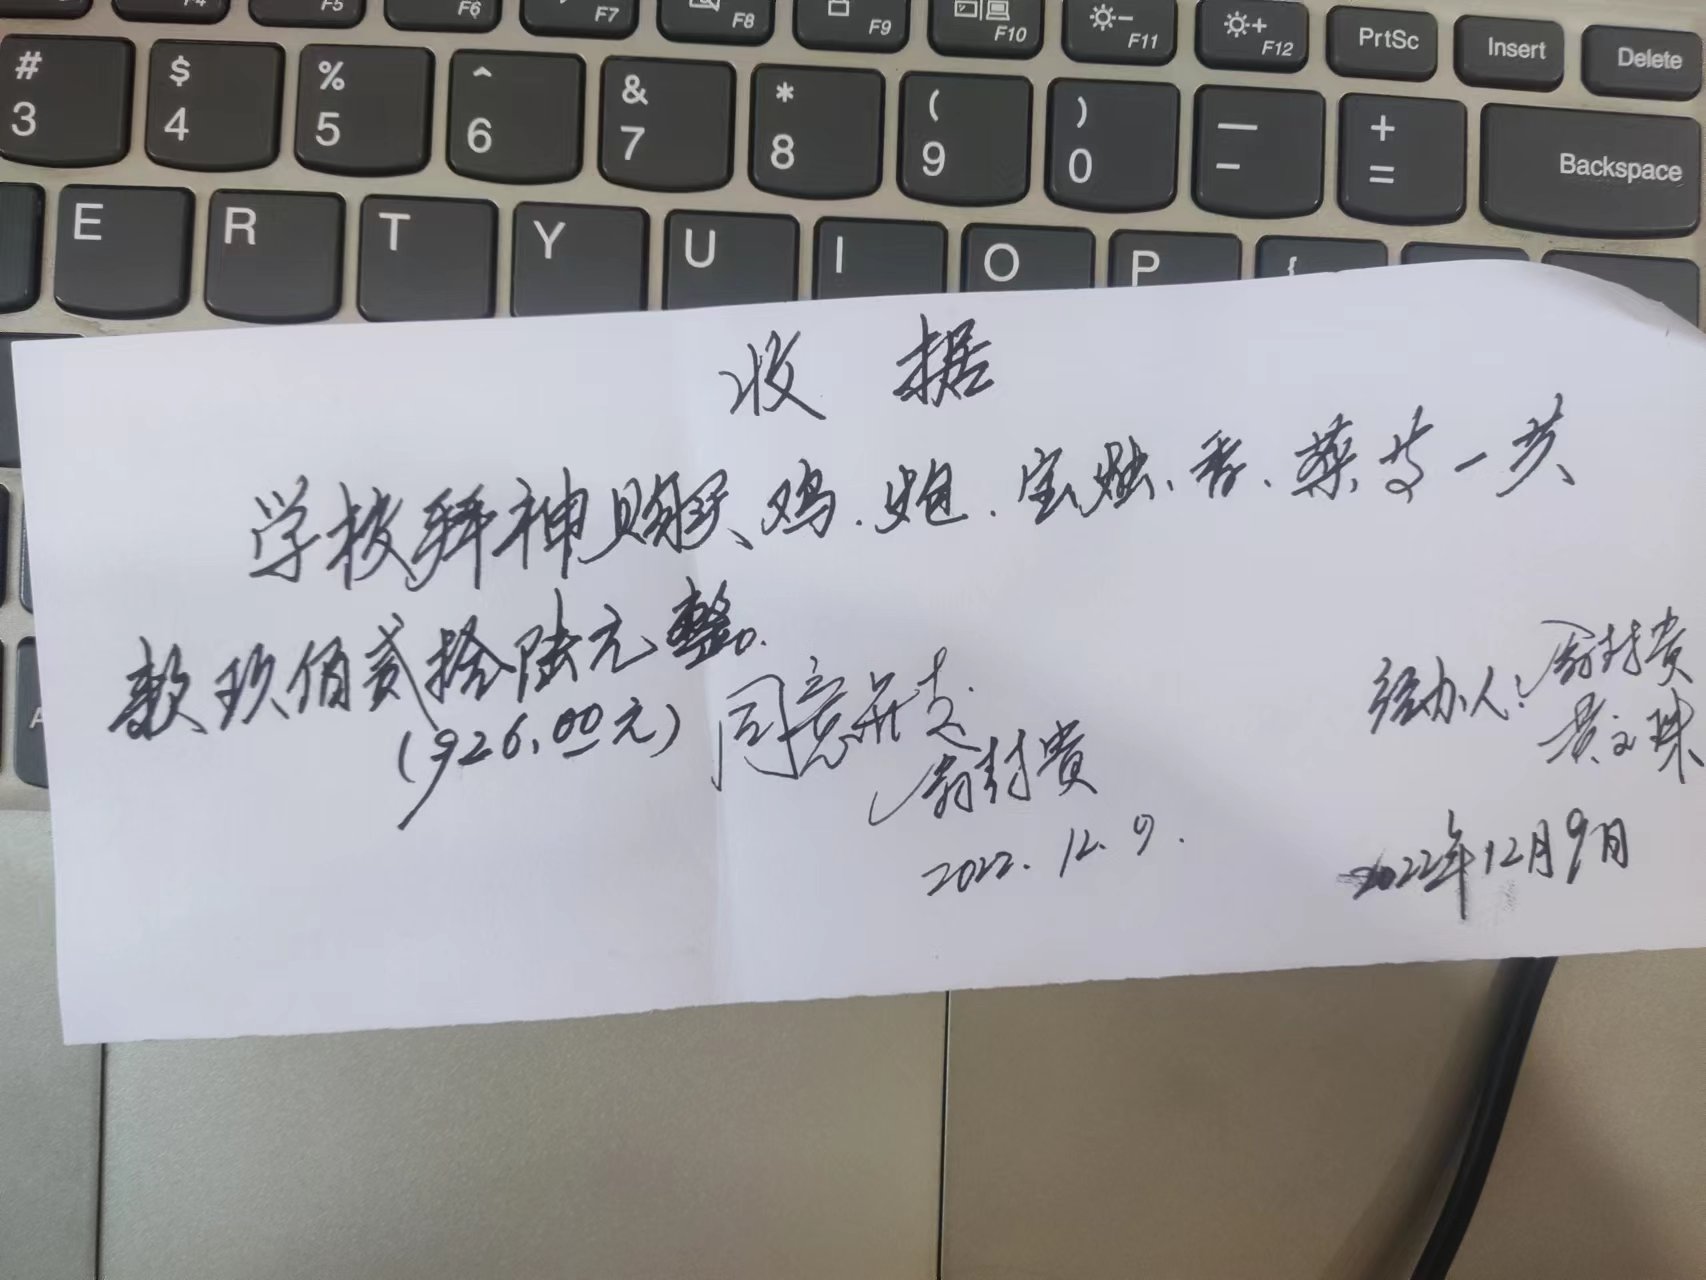 F5
F6
F7
F8
F9
F10
F11
F12
PrtSc
Insert
Delete
# 3
$ 4
% 5
^ 6
& 7
* 8
( 9
) 0
— -
+ =
Backspace
E R T Y U I O P {
A
收据
学校拜神购买、鸡、炮、宝烛、香、蔡等一共
款玖佰贰拾陆元整。
(926.00元)
同意开支
翁封贵
2022.12.9.
经办人：翁封贵
黄立珠
2022年12月9日